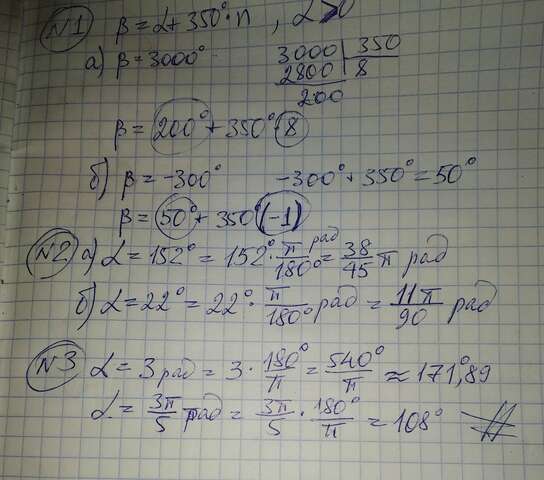 №1 β = α + 350° · n , α > 0
а) β = 3000° 3000 | 350
2800 | 8
200
β = 200° + 350° · 8
б) β = -300° -300° + 350° = 50°
β = 50° + 350° (-1)
№2 а) α = 152° = 152° · π/180° рад = 38/45 π рад
б) α = 22° = 22° · π/180° рад = 11π/90 рад
№3 α = 3 рад = 3 · 180°/π = 540°/π ≈ 171,89°
α = 3π/5 рад = 3π/5 · 180°/π = 108°